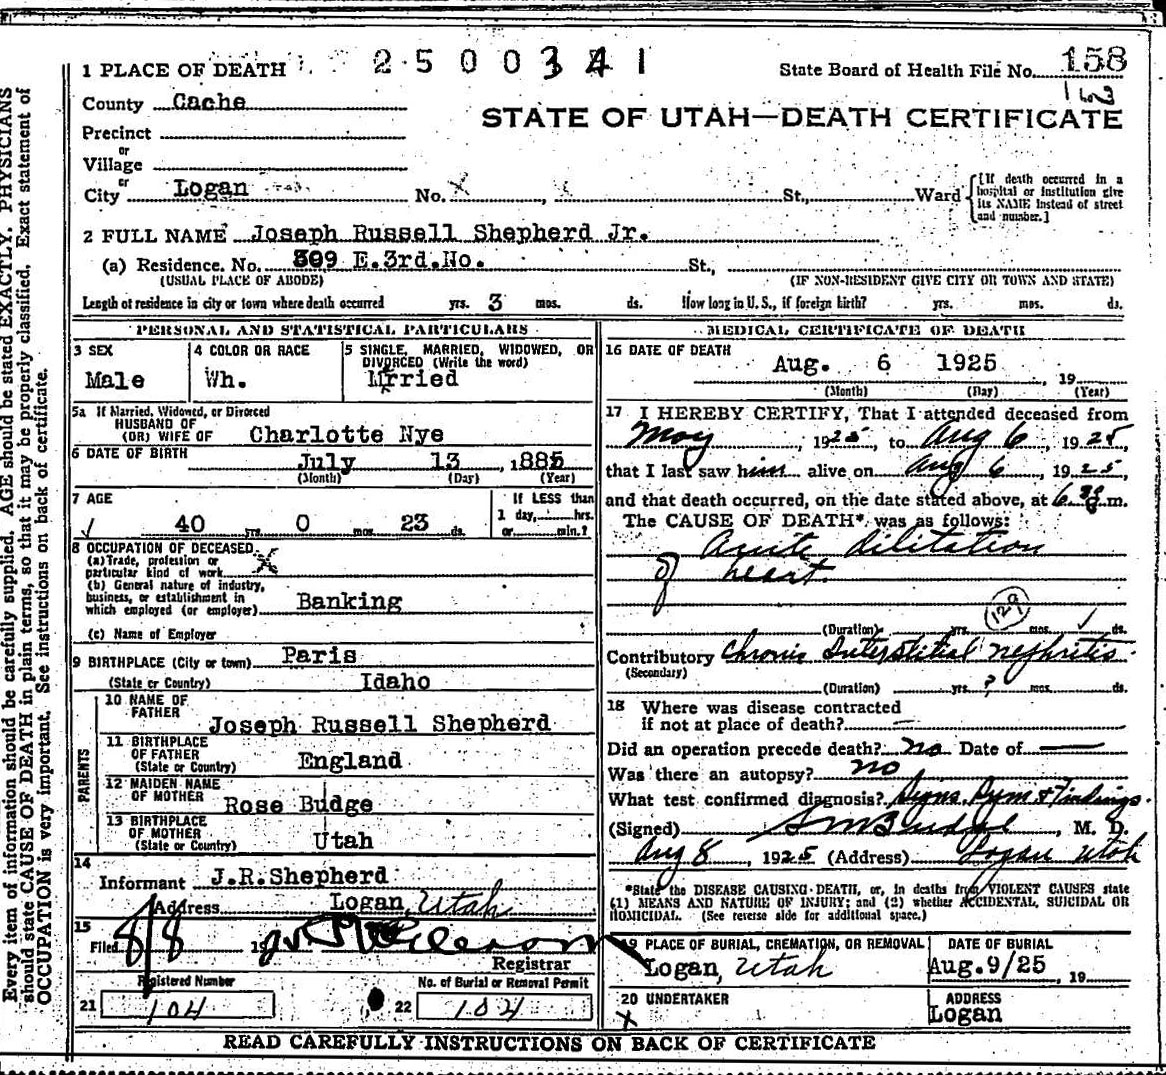 1 PLACE OF DEATH 2500341 State Board of Health File No. 158
163
County Cache
STATE OF UTAH—DEATH CERTIFICATE
Precinct
or
Village
or
City Logan No. x x St., Ward {[If death occurred in a hospital or institution give its NAME instead of street and number.]
2 FULL NAME Joseph Russell Shepherd Jr.
(a) Residence. No. 309 E.3rd.No. St.,
(USUAL PLACE OF ABODE) (IF NON-RESIDENT GIVE CITY OR TOWN AND STATE)
Length of residence in city or town where death occurred yrs. 3 mos. ds. How long in U. S., if foreign birth? yrs. mos. ds.
PERSONAL AND STATISTICAL PARTICULARS
3 SEX
Male
4 COLOR OR RACE
Wh.
5 SINGLE, MARRIED, WIDOWED, OR
DIVORCED (Write the word)
Mrried
5a If Married, Widowed, or Divorced
HUSBAND OF
(OR) WIFE OF Charlotte Nye
6 DATE OF BIRTH July 13, 1885
(Month) (Day) (Year)
7 AGE
40 yrs. 0 mos. 23 ds.
If LESS than
1 day, hrs.
or min.?
8 OCCUPATION OF DECEASED
(a) Trade, profession or
particular kind of work x
(b) General nature of industry,
business, or establishment in
which employed (or employer) Banking
(c) Name of Employer
9 BIRTHPLACE (City or town) Paris
(State or Country) Idaho
PARENTS
10 NAME OF
FATHER Joseph Russell Shepherd
11 BIRTHPLACE
OF FATHER England
(State or Country)
12 MAIDEN NAME
OF MOTHER Rose Budge
13 BIRTHPLACE
OF MOTHER
(State or Country) Utah
14
Informant J.R.Shepherd
Address Logan, Utah
15
Filed 8/8 19
Registrar
Registered Number
21 104
No. of Burial or Removal Permit
22 104
MEDICAL CERTIFICATE OF DEATH
16 DATE OF DEATH
Aug. 6 1925, 19
(Month) (Day) (Year)
17 I HEREBY CERTIFY, That I attended deceased from
May, 1925, to Aug 6, 1925,
that I last saw him alive on Aug 6, 1925,
and that death occurred, on the date stated above, at 6.30 m.
The CAUSE OF DEATH* was as follows:
Acute dilitation
of heart.
129
(Duration) yrs. mos. ds.
Contributory Chronic Interstitial nephritis.
(Secondary)
(Duration) yrs. ? mos. ds.
18 Where was disease contracted
if not at place of death? —
Did an operation precede death? no Date of —
Was there an autopsy? no
What test confirmed diagnosis? Signs, Sym & Findings.
(Signed) S M Budge, M. D.
Aug 8, 1925 (Address) Logan Utah
*State the DISEASE CAUSING DEATH, or, in deaths from VIOLENT CAUSES state
(1) MEANS AND NATURE OF INJURY; and (2) whether ACCIDENTAL, SUICIDAL OR
HOMICIDAL. (See reverse side for additional space.)
19 PLACE OF BURIAL, CREMATION, OR REMOVAL
Logan, Utah
DATE OF BURIAL
Aug.9/25, 19
20 UNDERTAKER
x
ADDRESS
Logan
READ CAREFULLY INSTRUCTIONS ON BACK OF CERTIFICATE
Every item of information should be carefully supplied. AGE should be stated EXACTLY. PHYSICIANS
should state CAUSE OF DEATH in plain terms, so that it may be properly classified. Exact statement of
OCCUPATION is very important. See instructions on back of certificate.